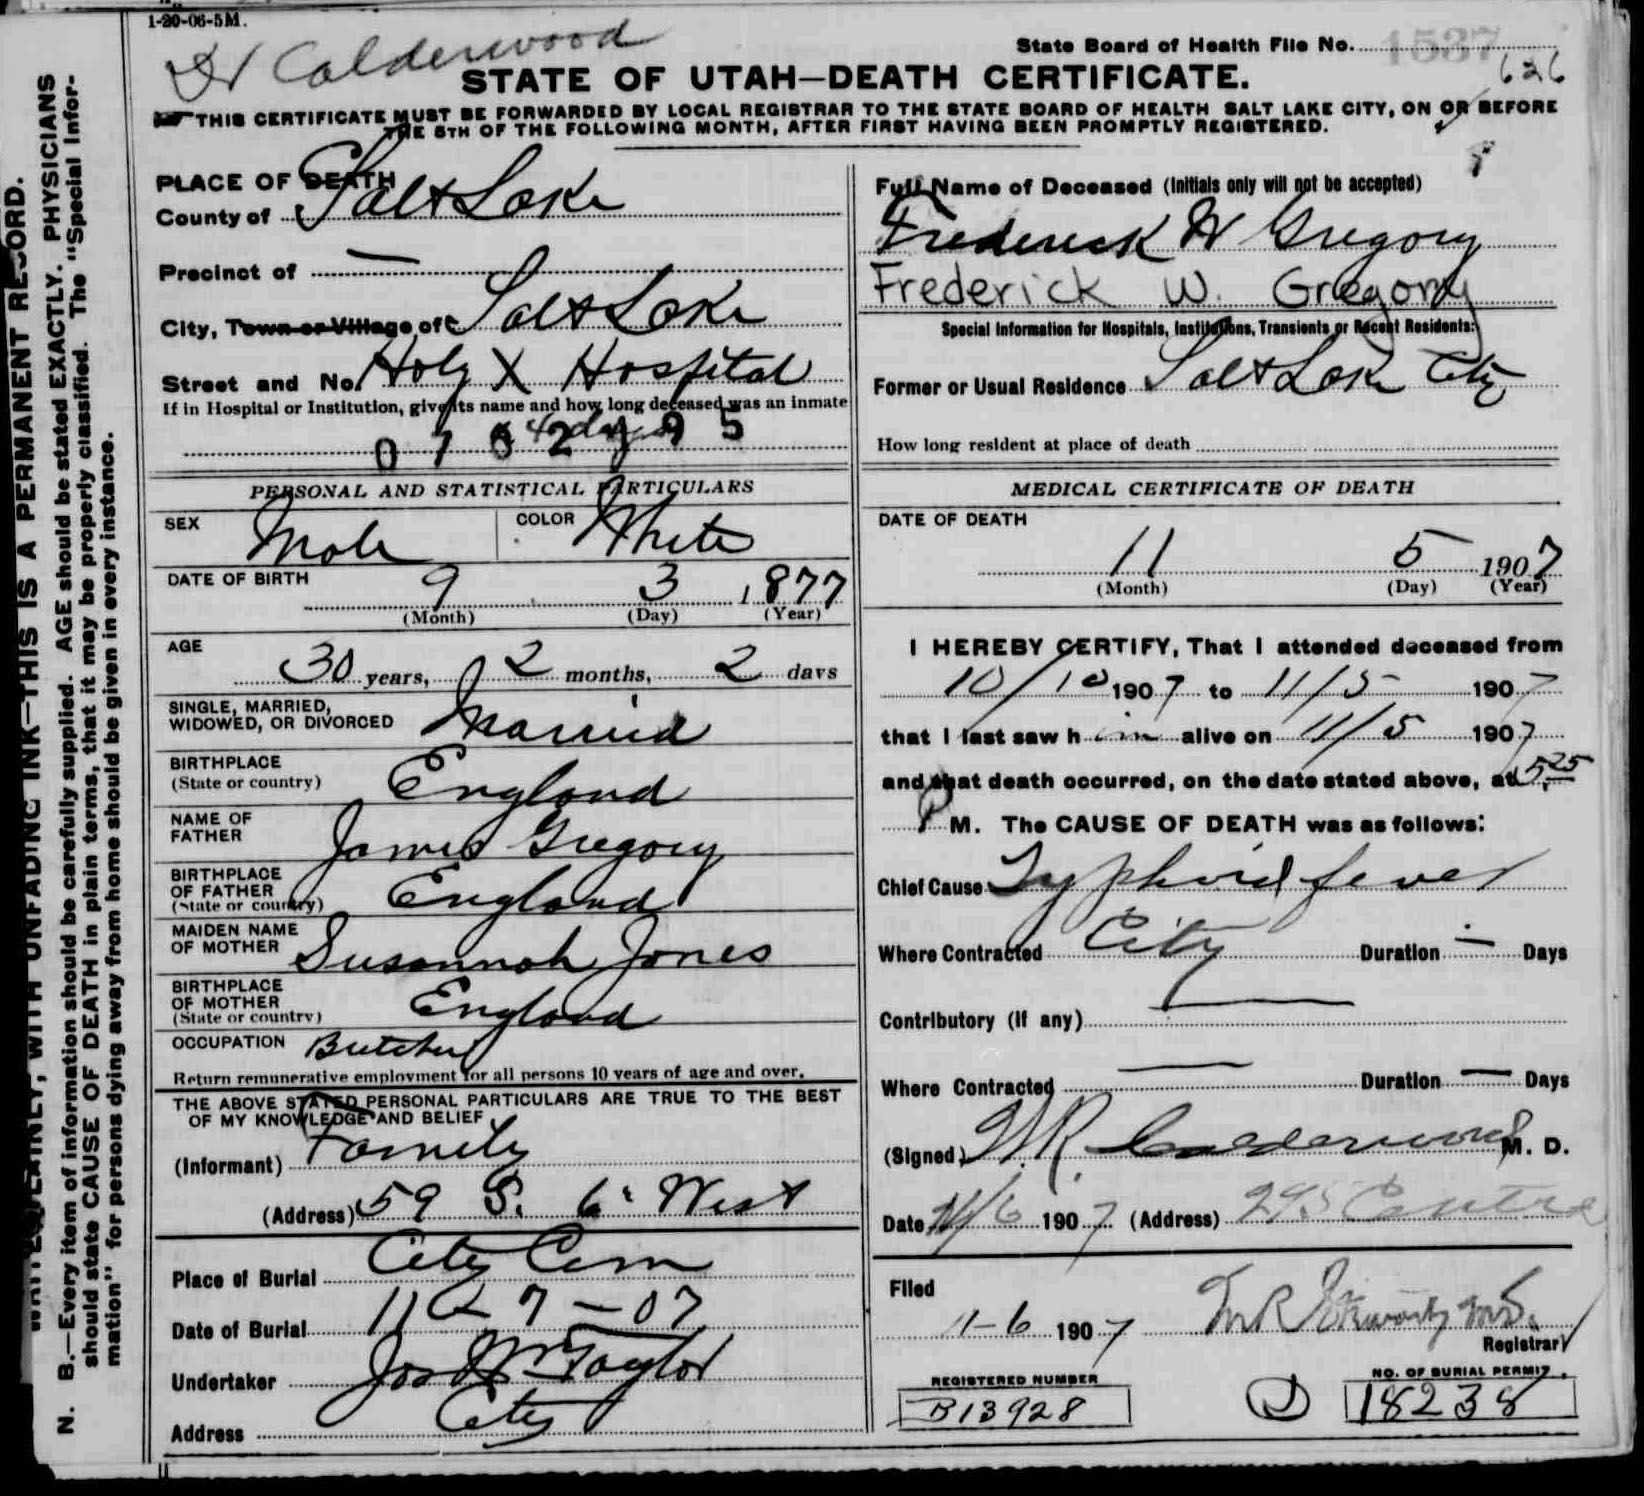 1-20-06-5M.
Dr Calderwood
State Board of Health File No. 1537
626
STATE OF UTAH—DEATH CERTIFICATE.
THIS CERTIFICATE MUST BE FORWARDED BY LOCAL REGISTRAR TO THE STATE BOARD OF HEALTH SALT LAKE CITY, ON OR BEFORE
THE 5TH OF THE FOLLOWING MONTH, AFTER FIRST HAVING BEEN PROMPTLY REGISTERED.
WRITE PLAINLY, WITH UNFADING INK—THIS IS A PERMANENT RECORD.
N. B.—Every item of information should be carefully supplied. AGE should be stated EXACTLY. PHYSICIANS
should state CAUSE OF DEATH in plain terms, that it may be properly classified. The "Special Infor-
mation" for persons dying away from home should be given in every instance.
PLACE OF DEATH
County of Salt Lake
Precinct of —
City, Town or Village of Salt Lake
Street and No. Holy X Hospital
If in Hospital or Institution, give its name and how long deceased was an inmate
4 days
PERSONAL AND STATISTICAL PARTICULARS
SEX Male COLOR White
DATE OF BIRTH 9 3 1877
(Month) (Day) (Year)
AGE
30 years, 2 months, 2 days
SINGLE, MARRIED,
WIDOWED, OR DIVORCED Married
BIRTHPLACE
(State or country) England
NAME OF
FATHER James Gregory
BIRTHPLACE
OF FATHER
(State or country) England
MAIDEN NAME
OF MOTHER Susannah Jones
BIRTHPLACE
OF MOTHER
(State or country) England
OCCUPATION Butcher
Return remunerative employment for all persons 10 years of age and over.
THE ABOVE STATED PERSONAL PARTICULARS ARE TRUE TO THE BEST
OF MY KNOWLEDGE AND BELIEF
(Informant) Family
(Address) 59 S. 6 West
Place of Burial City Cem
Date of Burial 11-7-07
Undertaker Jos Wm Taylor
Address City
Full Name of Deceased (Initials only will not be accepted)
Frederick W Gregory
Frederick W. Gregory
Special Information for Hospitals, Institutions, Transients or Recent Residents:
Former or Usual Residence Salt Lake City
How long resident at place of death
MEDICAL CERTIFICATE OF DEATH
DATE OF DEATH
11 5 1907
(Month) (Day) (Year)
I HEREBY CERTIFY, That I attended deceased from
10/10 1907 to 11/5 1907
that I last saw him alive on 11/5 1907
and that death occurred, on the date stated above, at 5.25
P M. The CAUSE OF DEATH was as follows:
Chief Cause Typhoid fever
Where Contracted City Duration — Days
Contributory (if any) —
Where Contracted — Duration — Days
(Signed) W.R. Calderwood M. D.
Date 11/6 1907 (Address) 295 Centre
Filed
11-6 1907
Registrar
REGISTERED NUMBER
B13928
NO. OF BURIAL PERMIT.
18238